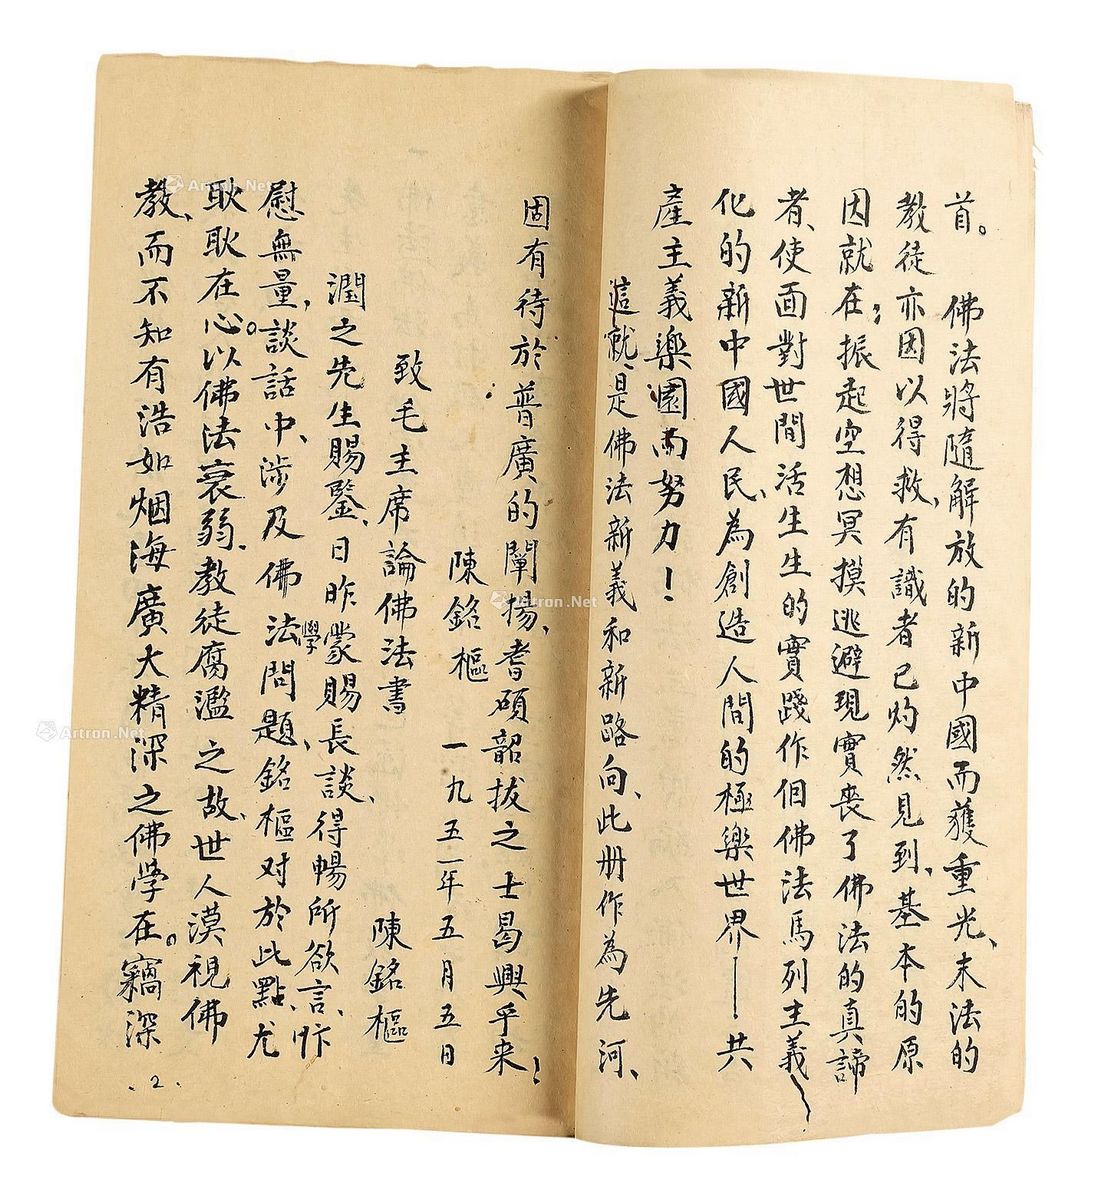 首。佛法將隨解放的新中國而獲重光、末法的
教徒亦因以得救、有識者已灼然見到、基本的原
因就在；振起空想冥摸逃避現實喪了佛法的真諦
者、使面對世間活生生的實踐作佀佛法馬列主義
化的新中國人民、為創造人間的極樂世界——共
產主義樂園而努力！
這就是佛法新義和新路向、此册作為先河、
固有待於普廣的闡揚、耆碩韶拔之士曷興乎来！
陳銘樞 一九五一年五月五日
致毛主席論佛法書 陳銘樞
潤之先生賜鑒、日昨蒙賜長談、得暢所欲言、忭
慰無量、談話中、涉及佛法學問題、銘樞对於此點、尤
耿耿在心。以佛法衰弱、教徒腐濫之故、世人漠視佛
教、而不知有浩如烟海廣大精深之佛學在。竊深
.2.
Artron.Net
Artron.Net
Artron.Net